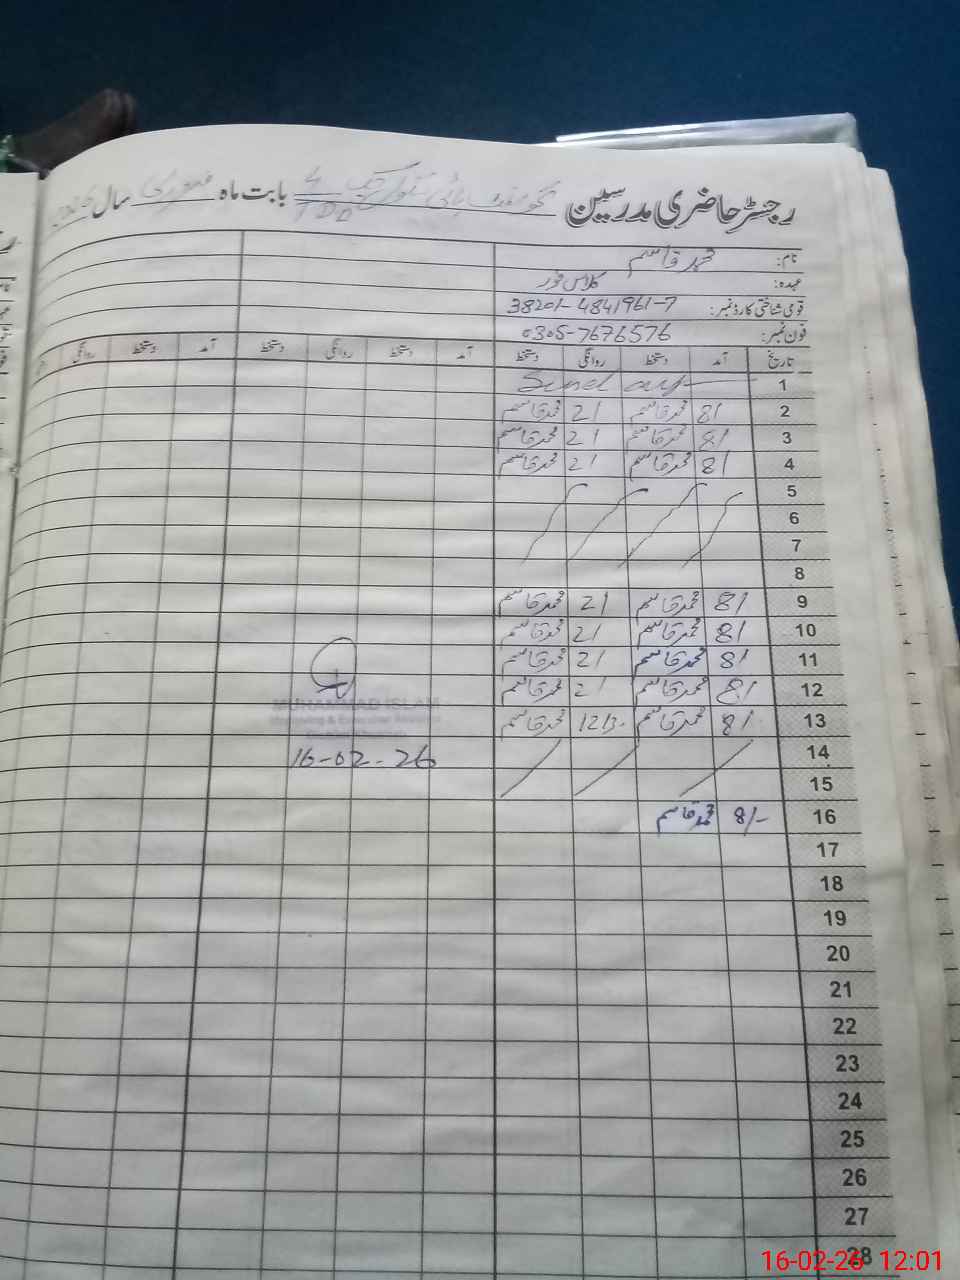 رجسٹر حاضری مدرسین گورنمنٹ ہائی سکول چک 4 TDA بابت ماہ فروری سال 2026
نام: محمد قاسم
عہدہ: کلاس فور
قومی شناختی کارڈ نمبر: 38201-4841961-7
فون نمبر: 0305-7676576
تاریخ آمد دستخط روانگی دستخط آمد دستخط روانگی دستخط آمد دستخط روانگی
1 Sunday
2 8/ محمد قاسم 2/ محمد قاسم
3 8/ محمد قاسم 2/ محمد قاسم
4 8/ محمد قاسم 2/ محمد قاسم
5
6
7
8
9 8/ محمد قاسم 2/ محمد قاسم
10 8/ محمد قاسم 2/ محمد قاسم
11 8/ محمد قاسم 2/ محمد قاسم
12 8/ محمد قاسم 2/ محمد قاسم
13 8/ محمد قاسم 12/30 محمد قاسم
MUHAMMAD ISLAM
Monitoring & Evaluation Assistant
14
16-02-26
15
16 8/- محمد قاسم
17
18
19
20
21
22
23
24
25
26
27
28
16-02-26 12:01